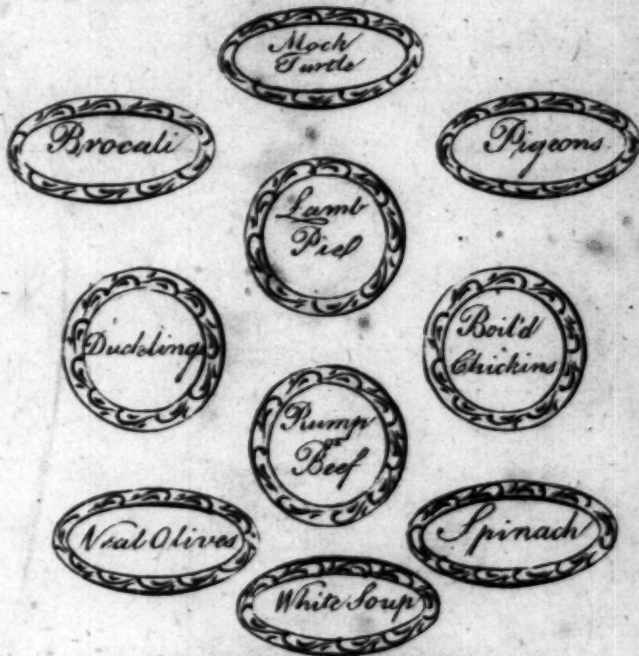 Moch
Turtle
Brocali
Pigeons
Lamb
Pie
Duckling
Boil'd
Chickins
Rump
of
Beef
Veal Olives
Spinach
White Soup